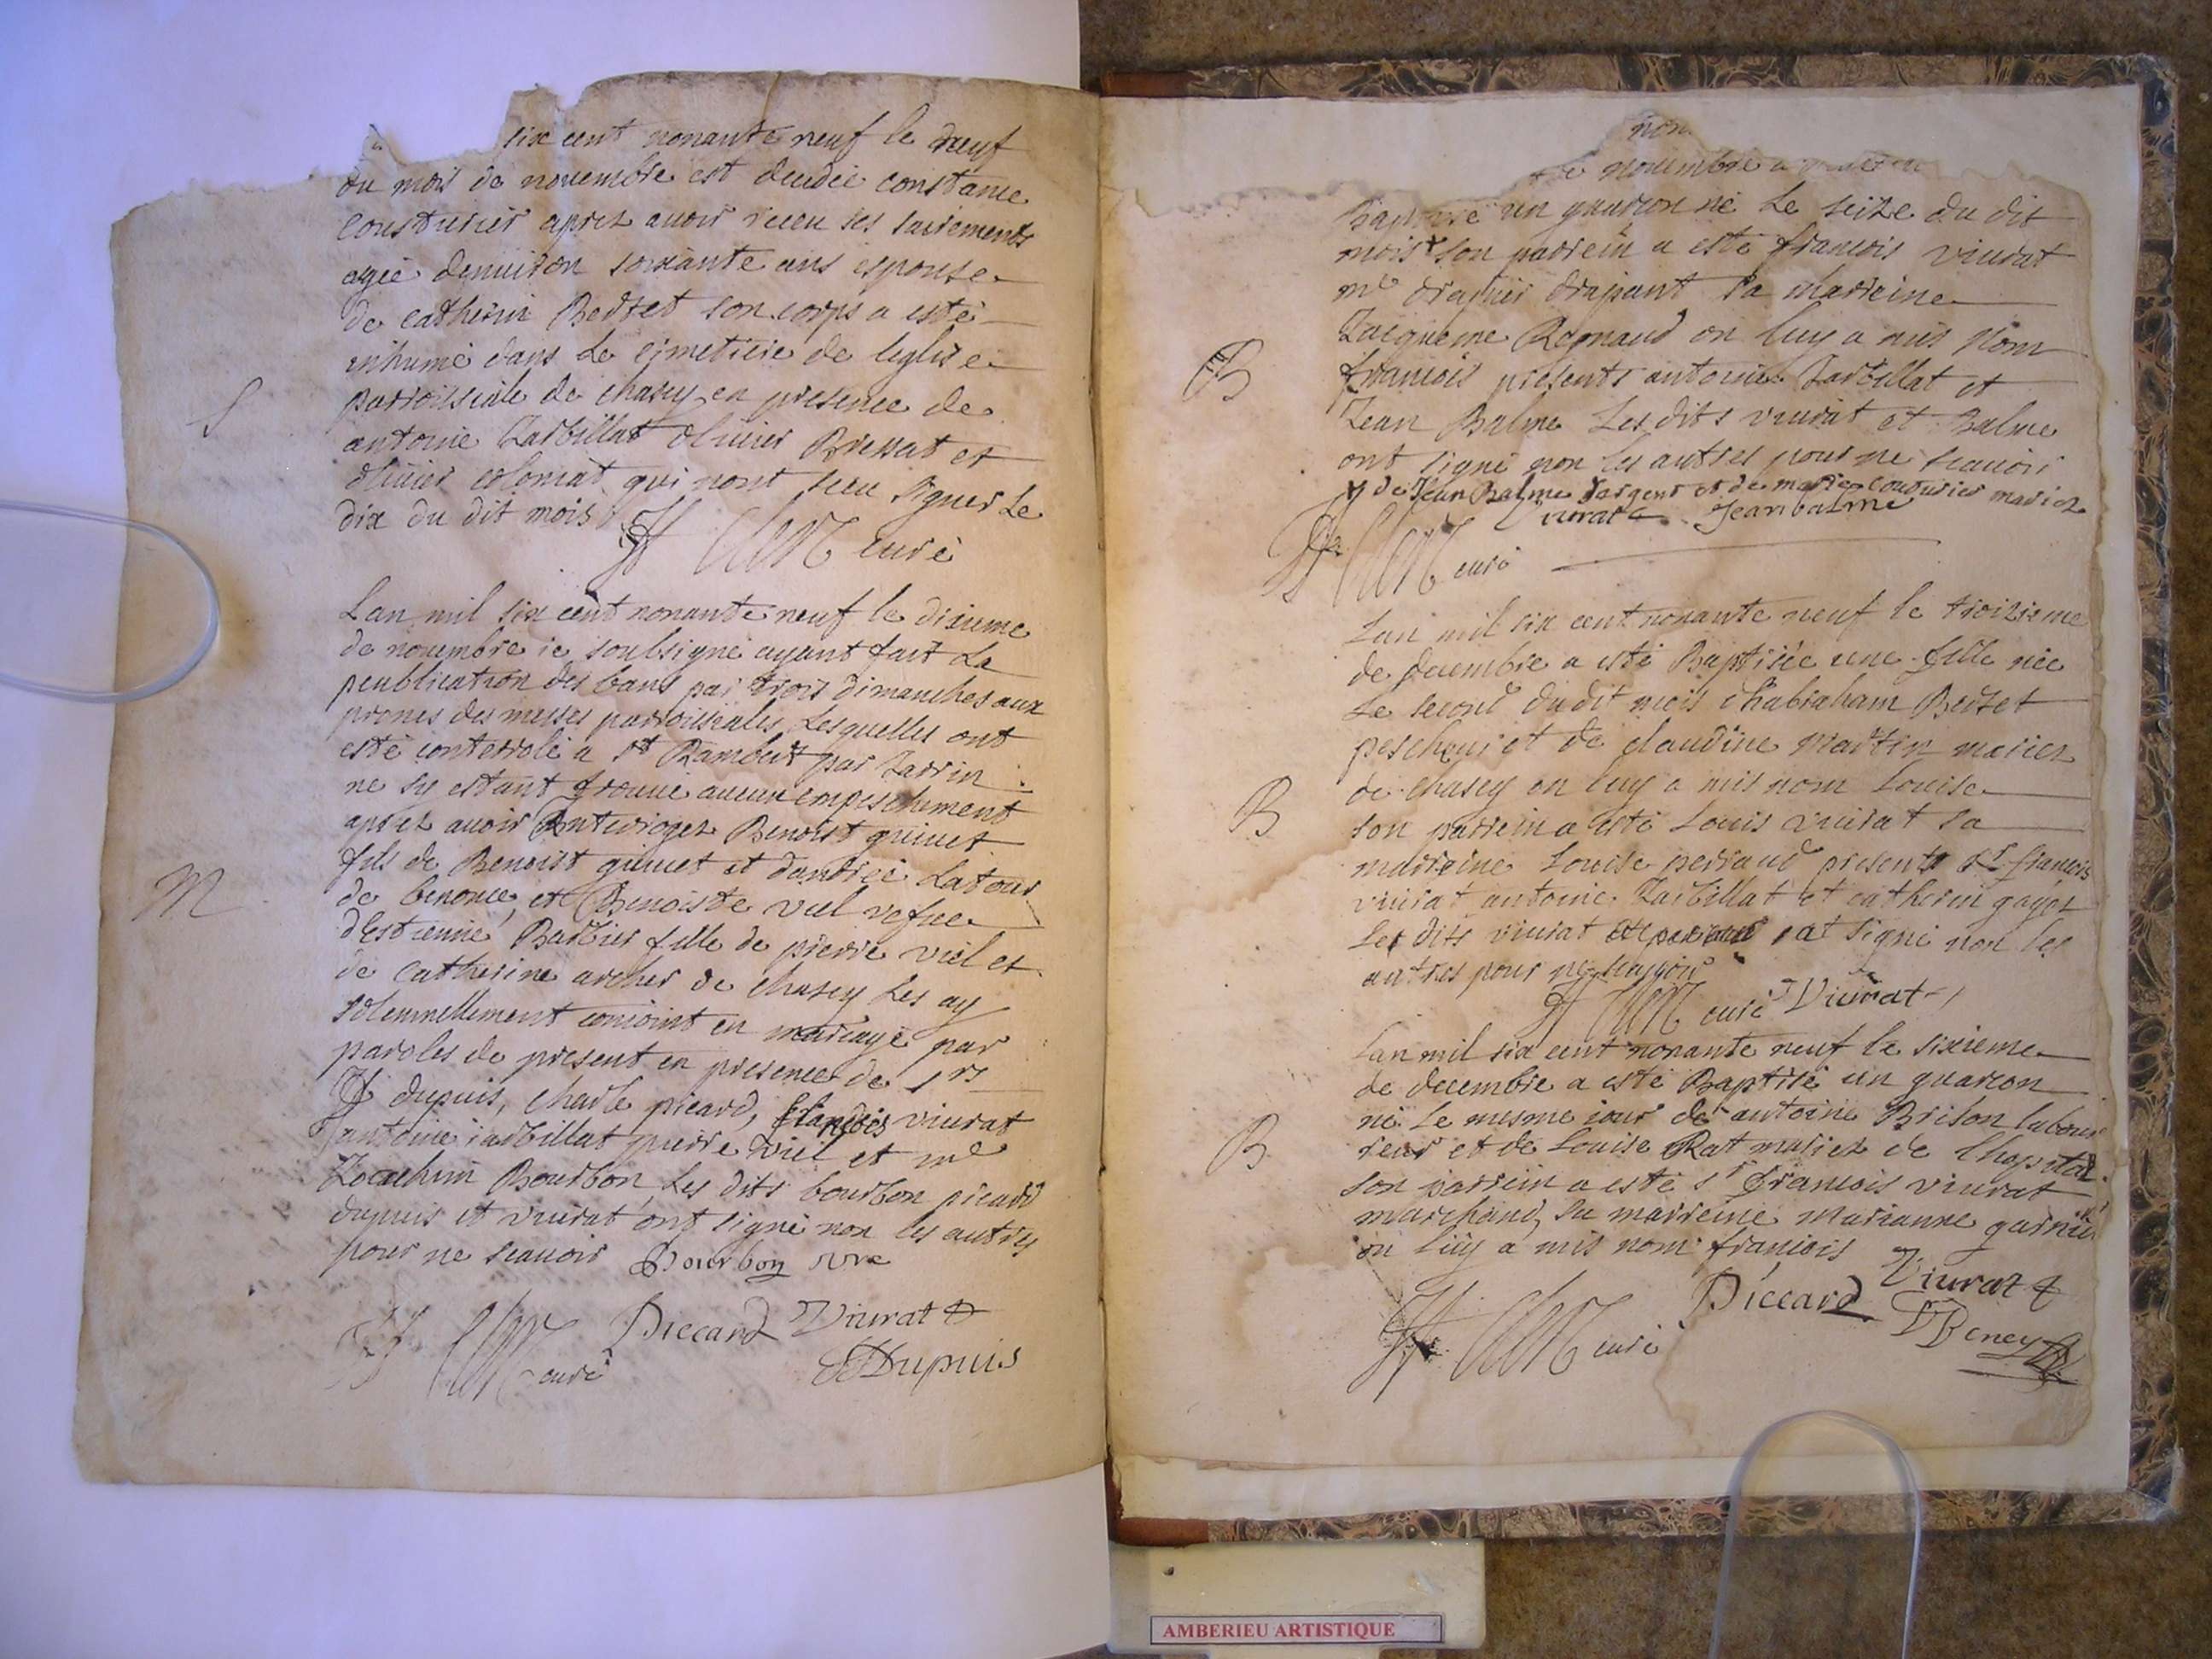 six cent nonante neuf le neuf
du mois de nouembre est decedee constame
Cousturier aprez auoir receu ses sacrements
agee denuiron soixante ans espouse
de catherin Bertet son corps a esté
inhumé dans le cimetiere de leglise
parroissiale de chasey en presence de
antoine Jarbillat oliuier Bressat et
oliuier colomat qui nont sceu signer le
dix du dit mois
curé
S
Lan mil six cent nonante neuf le dixieme
de nouembre ie soubsigné ayant fait la
peublication des bans par trois dimanches aux
prones des messes parroissiales lesquelles ont
esté conterrolé a st Rambert par Jarrin
ne sy estant trouué aucun empeschement
aprez auoir Interrogez Benoist guinet
fils de Benoist guinet et dandrée Latour
de benonce et Benoiste viel vefue
dEstienne Barbier fille de pierre viel et
de catherine archer de chasey les ay
solemnellement conioint en mariage par
paroles de present en presence de srs
dupuis, charle picard, francois viurat
antoine iarbillat pierre viel et me
Joachim Bourbon les dits bourbon picard
dupuis et viurat ont signé non les autres
pour ne scauoir Bourbon
M
Piccard Viurat
curé Dupuis
non
nouembre a
Baptisé un guarcon né le seize du dit
mois son parrein a esté francois viurat
me drapier drapant sa marreine
Jacqueme Reynaud on luy a mis nom
francois presents antoine Jarbillat et
Jean Balme les dits viurat et Balme
ont signé non les autres pour ne scauoir
de Jean Balme sargent et de marie couturier mariez
viurat Jean balme
curé
B
Lan mil six cent nonante neuf le troizieme
de decembre a esté Baptisée une fille née
le second du dit mois dhabraham Bertet
pescheur et de claudine martin mariez
de chasey on luy a mis nom Louise
son parrein a esté Louis viurat sa
marreine Louise perraud presents sr francois
viurat antoine Jarbillat et catherin gagez
les dits viurat signé non les
autres pour ne scauoir
curé Viurat
B
Lan mil six cent nonante neuf le sixieme
de decembre a esté Baptisé un guarcon
né le mesme iour de antoine Brison labour
reur et de Louise Rat mariez de lhopital
son parrein a esté sr francois viurat
marchand, sa marreine marianne garnier
on luy a mis nom francois
B
Piccard Viurat
curé Beney
AMBERIEU ARTISTIQUE